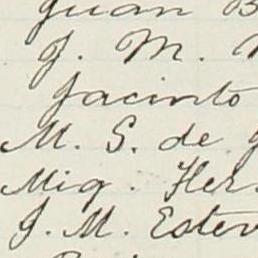 Juan B
J. M.
Jacinto
M. S. de
Miq. Her
J. M. Estev